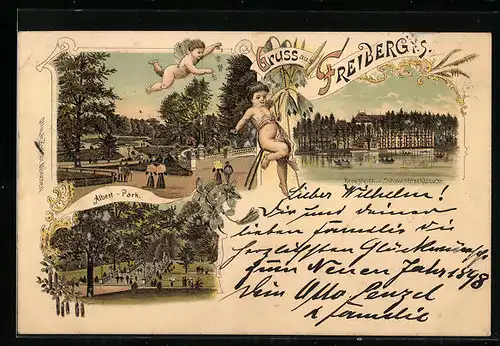 Gruss aus
FREIBERG i. S.
Albert-Park.
Kreuzteich
Lieber Wilhelm!
Dir und deiner
lieben Familie die
herzlichsten Glückwünsche
zum Neuen Jahr 1898
Dein Otto
& Familie